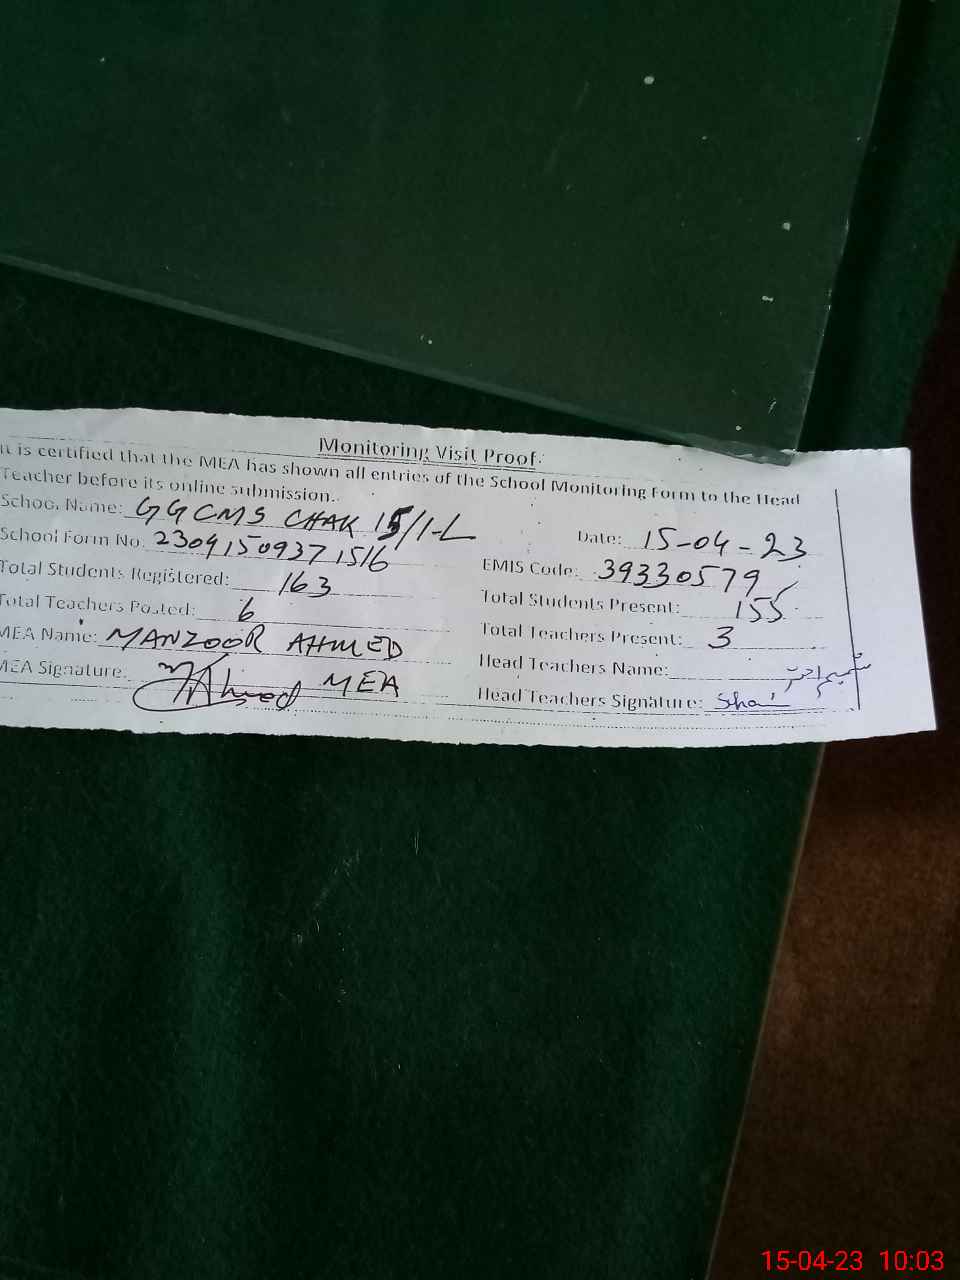 Monitoring Visit Proof.
It is certified that the MEA has shown all entries of the School Monitoring Form to the Head
Teacher before its online submission.
School Name: GGCMS CHAK 15/1-L Date: 15-04-23
School Form No: 23091509371516 EMIS Code: 39330579
Total Students Registered: 163 Total Students Present: 155
Total Teachers Posted: 6 Total Teachers Present: 3
MEA Name: MANZOOR AHMED Head Teachers Name:
MEA Signature: MAhmed MEA Head Teachers Signature:
15-04-23 10:03